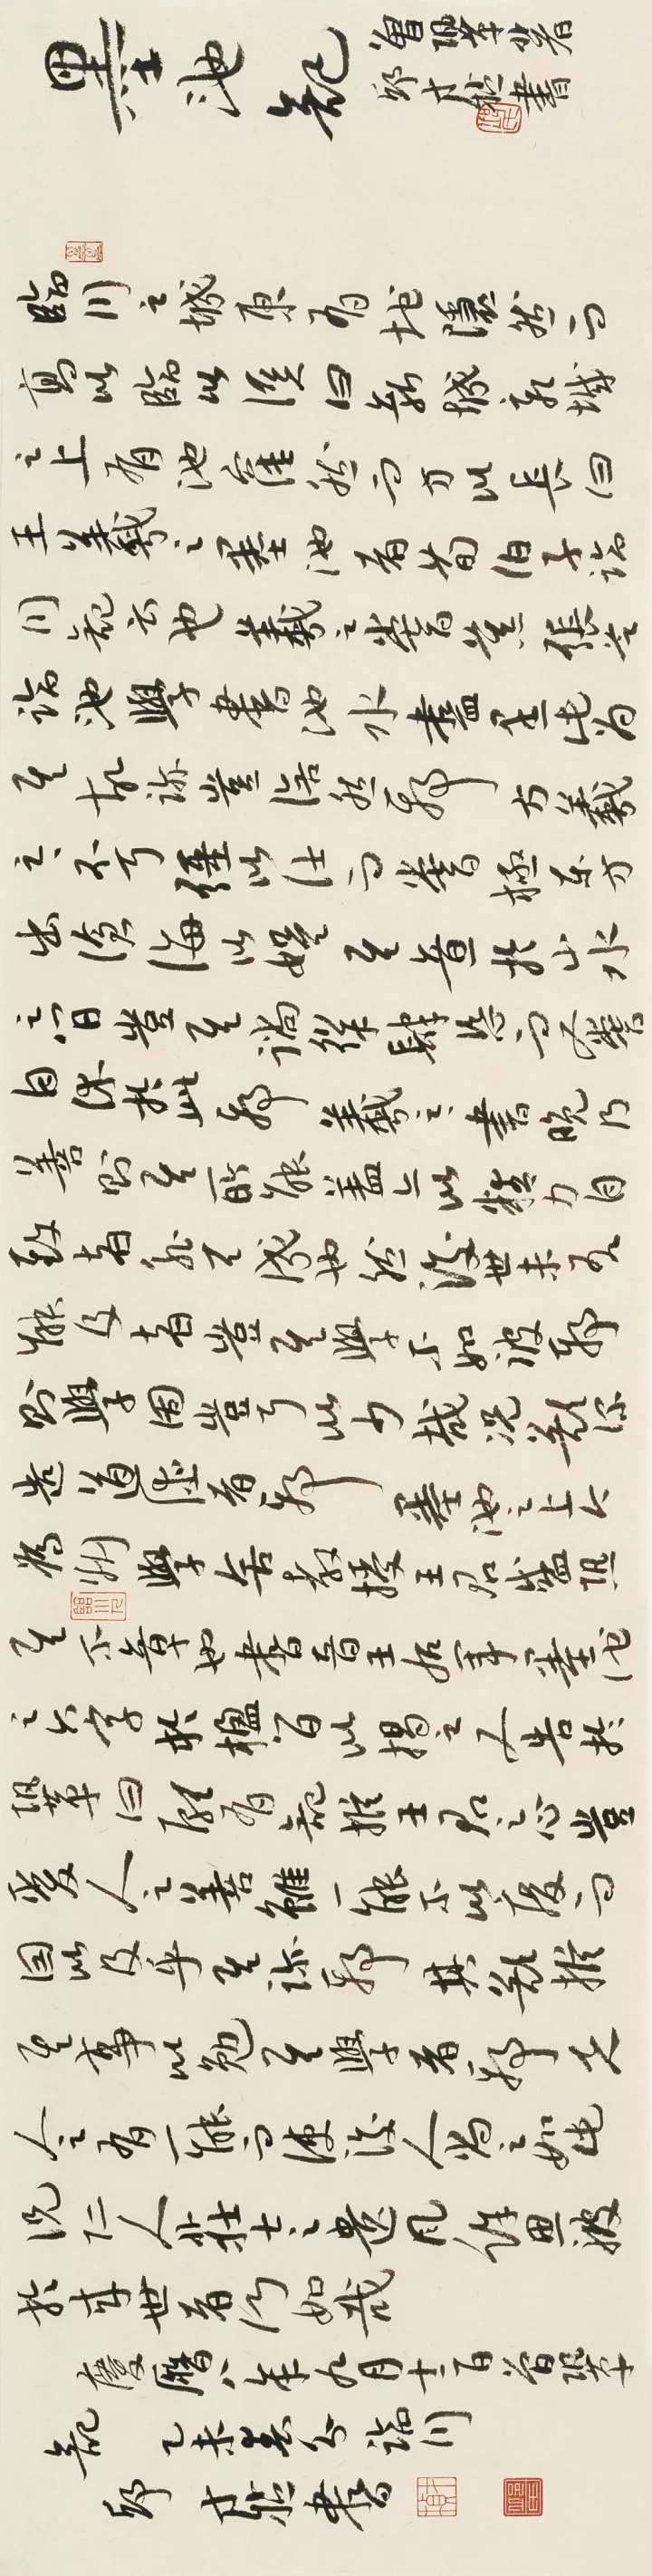 墨池記
曾鞏著
邱才楨書
臨川之城東有地隱然而
高以臨於溪曰新城新城
之上有池窪然而方以長曰
王羲之墨池者荀伯子臨
川記云也羲之嘗慕張芝
臨池學書池水盡黑此為
其故跡豈信然邪 方羲
之之不可強以仕而嘗極東方
出滄海以娛其意於山水
之間豈其徜徉肆恣而又嘗
自休於此邪 羲之之書晚乃
善則其所能蓋亦以精力自
致者非天成也然後世未有
能及者豈其學不如彼邪
則學固豈可以少哉況欲深
造道德者邪 墨池之上今
為州學舍教授王君盛恐
其不章也書晉王右軍墨池
之六字於楹間以揭之又告於
鞏曰願有記推王君之心豈
愛人之善雖一能不以廢而
因以及乎其跡邪 其亦欲推
其事以勉其學者邪 夫
人之有一能而使後人尚之如此
況仁人莊士之遺風餘思被
於來世者何如哉
慶曆八年九月十二日曾鞏
記 乙未春分臨川
邱才楨書